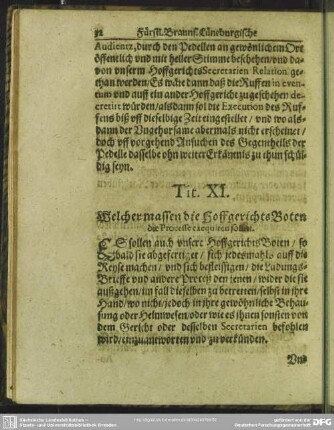 32 Fürstl. Braunß. Lüneburgische
Audientz, durch den Pedellen an gewönlichem Ort
öffentlich vnd mit heller Stimme beschehen/ vnd da-
von vnserm HoffgerichtsSecretarien Relation ge-
than werden/ Es wäre dann daß die Ruffen in even-
eum vnd auff ein ander Hoffgericht zugeschehen de-
cretirt würden/ alsdann sol die Execution des Ruf-
fens biß vff dieselbige Zeit eingestellet/ vnd wo als-
dann der Vngehorsame abermals nicht erscheinet/
doch vff vorgehend Ansuchen des Gegentheils der
Pedelle dasselbe ohn weiter Erkäntnis zu thun schül-
dig seyn.
Tit. XI.
Welcher massen die HoffgerichtsBoten
die Processe exequiren sollen.
ES sollen auch vnsere HoffgerichtsBoten/ so
bald sie abgefertiget/ sich jedesmahls auff die
Reyse machen/ vnd sich befleissigen/ die Ladungs-
Brieffe vnd andere Proceß den jenen/ wider die sie
außgehen/ im fall dieselben zu betreten/ selbst in ihre
Hand/ wo nicht/ jedoch in ihre gewöhnliche Behau-
sung oder Heimwesen/ oder wie es ihnen sonsten von
dem Gericht oder desselben Secretarien befohlen
wird/ einzuantworten vnd zu verkünden.
Vnd